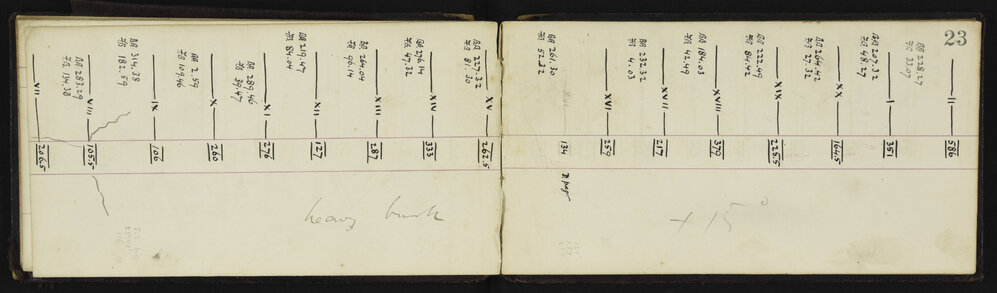 23
VII
206.5
BB 283.29
FB 134.38
VIII
105.5
BB 314.38
FB 182.59
IX
106
BB 2.59
FB 109.46
X
260
BB 289.46
FB 39.47
XI
276
BB 219.47
FB 84.04
XII
127
BB 264.04
FB 96.14
XIII
287
BB 276.14
FB 47.32
XIV
333
BB 227.32
FB 81.30
XV
262.5
heavy bush
BB 261.30
FB 52.32
XVI
134
BB 232.32
FB 4.03
XVI
259
XVII
217
BB 184.03
FB 42.49
XVIII
370
BB 222.49
FB 84.42
XIX
225.5
BB 264.42
FB 27.32
XX
164.5
BB 207.32
FB 48.27
I
351
BB 228.27
FB 33.07
II
586
+ 15°